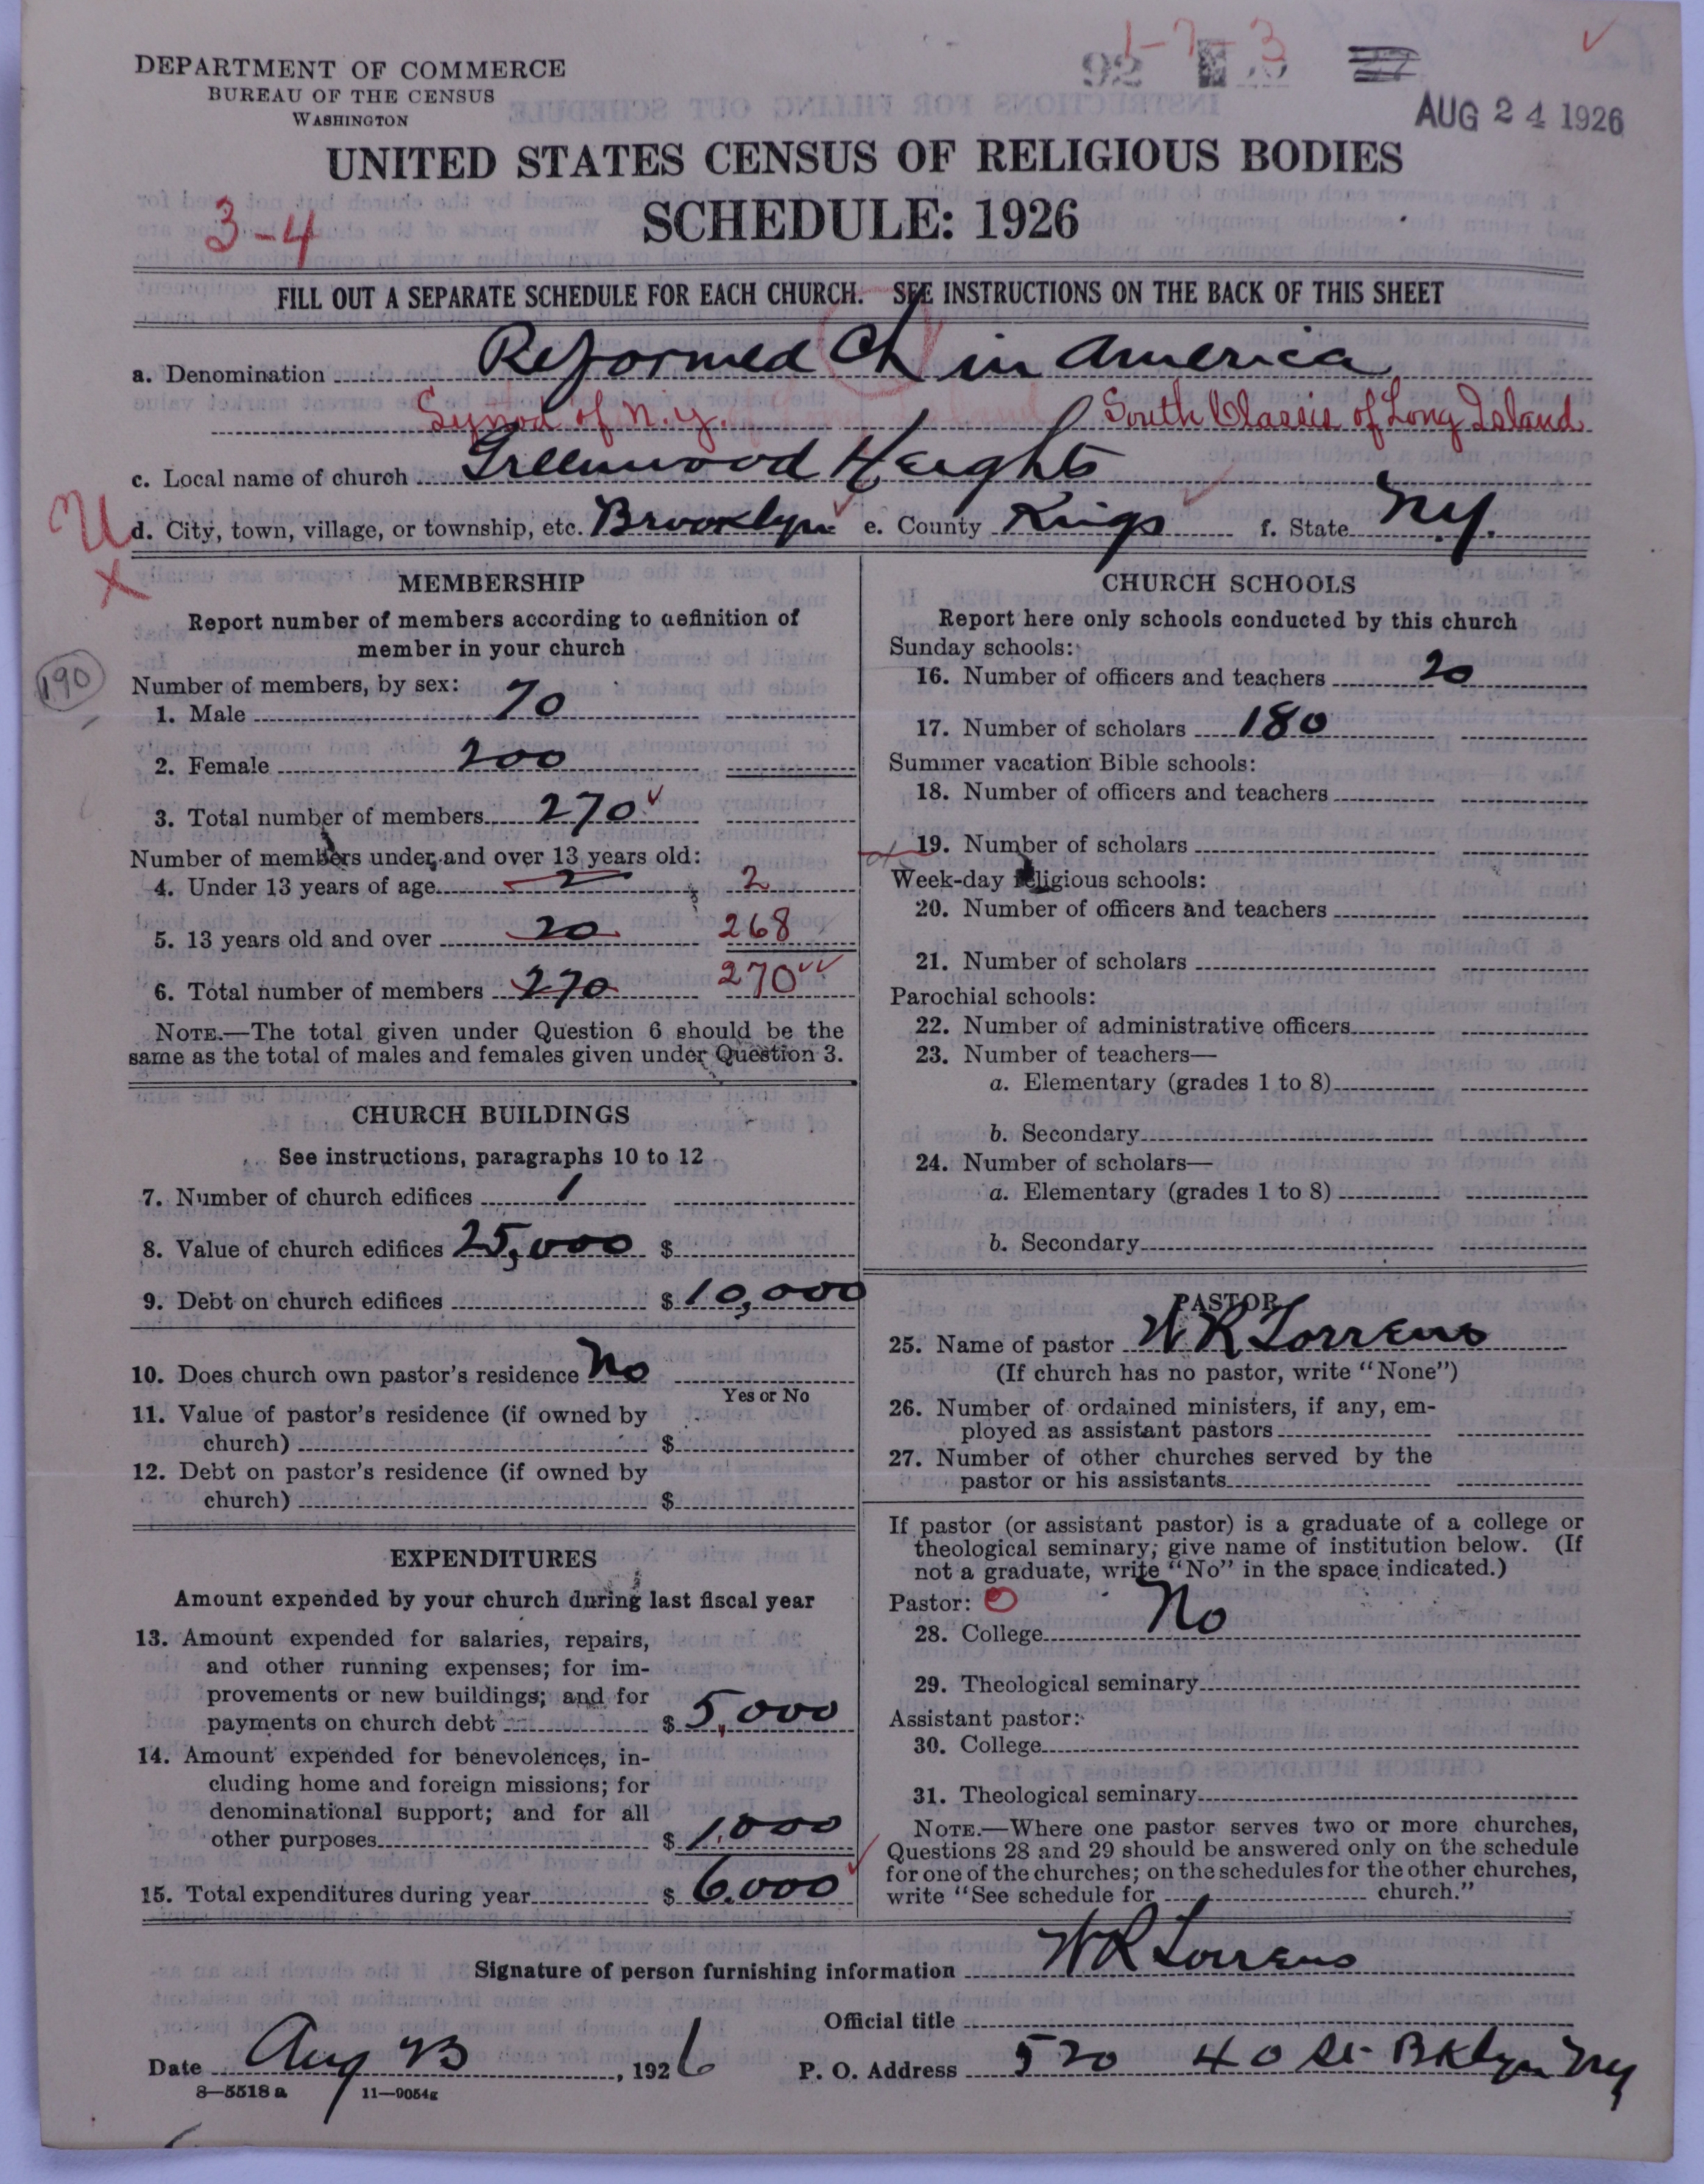 1-7-3
DEPARTMENT OF COMMERCE
BUREAU OF THE CENSUS
WASHINGTON
AUG 24 1926
UNITED STATES CENSUS OF RELIGIOUS BODIES
SCHEDULE: 1926
3-4
FILL OUT A SEPARATE SCHEDULE FOR EACH CHURCH. SEE INSTRUCTIONS ON THE BACK OF THIS SHEET
a. Denomination Reformed Ch in America
Synod of N.Y. South Classis of Long Island
c. Local name of church Greenwood Heights
d. City, town, village, or township, etc. Brooklyn e. County Kings f. State N.Y.
MEMBERSHIP
Report number of members according to definition of
member in your church
190
Number of members, by sex:
1. Male 70
2. Female 200
3. Total number of members 270
Number of members under and over 13 years old:
4. Under 13 years of age 2 2
5. 13 years old and over 20 268
6. Total number of members 270 270
NOTE.—The total given under Question 6 should be the
same as the total of males and females given under Question 3.
CHURCH BUILDINGS
See instructions, paragraphs 10 to 12
7. Number of church edifices 1
8. Value of church edifices 25,000 $
9. Debt on church edifices $ 10,000
10. Does church own pastor's residence No
Yes or No
11. Value of pastor's residence (if owned by
church) $
12. Debt on pastor's residence (if owned by
church) $
EXPENDITURES
Amount expended by your church during last fiscal year
13. Amount expended for salaries, repairs,
and other running expenses; for im-
provements or new buildings; and for
payments on church debt $ 5,000
14. Amount expended for benevolences, in-
cluding home and foreign missions; for
denominational support; and for all
other purposes $ 1,000
15. Total expenditures during year $ 6,000
CHURCH SCHOOLS
Report here only schools conducted by this church
Sunday schools:
16. Number of officers and teachers 20
17. Number of scholars 180
Summer vacation Bible schools:
18. Number of officers and teachers
19. Number of scholars
Week-day religious schools:
20. Number of officers and teachers
21. Number of scholars
Parochial schools:
22. Number of administrative officers
23. Number of teachers—
a. Elementary (grades 1 to 8)
b. Secondary
24. Number of scholars—
a. Elementary (grades 1 to 8)
b. Secondary
PASTOR
25. Name of pastor W R Torrens
(If church has no pastor, write "None")
26. Number of ordained ministers, if any, em-
ployed as assistant pastors
27. Number of other churches served by the
pastor or his assistants
If pastor (or assistant pastor) is a graduate of a college or
theological seminary, give name of institution below. (If
not a graduate, write "No" in the space indicated.)
Pastor:
28. College No
29. Theological seminary
Assistant pastor:
30. College
31. Theological seminary
NOTE.—Where one pastor serves two or more churches,
Questions 28 and 29 should be answered only on the schedule
for one of the churches; on the schedules for the other churches,
write "See schedule for church."
Signature of person furnishing information W R Torrens
Official title
Date Aug 23, 1926 P. O. Address 520 40 St Bklyn NY
8—5518a 11—9054g